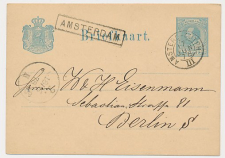 AMSTERDAM
Briefkaart.
AMSTERDAM
W. H. Eisenmann
Sebastian Straße 81
Berlin S